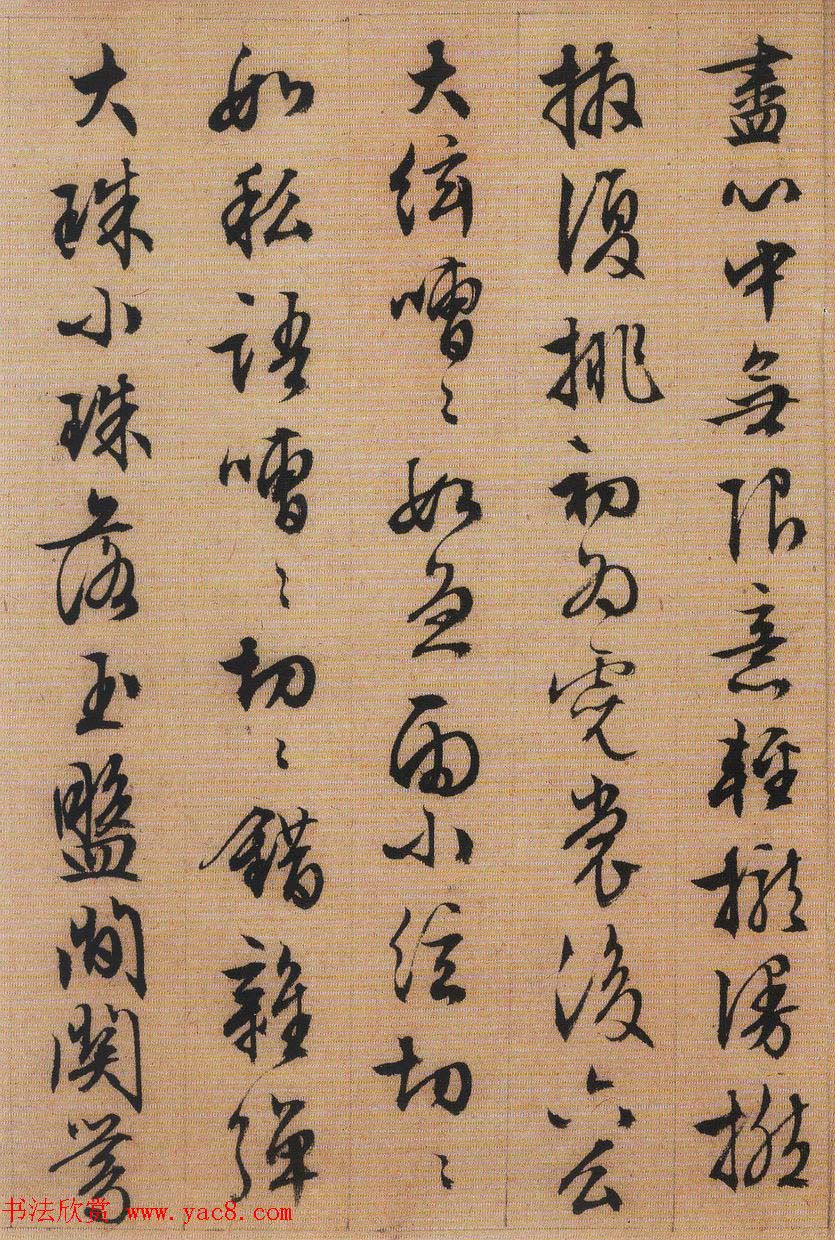 盡心中無限意輕攏慢撚
撥復挑初為霓裳後六幺
大絃嘈〻如急雨小絃切〻
如私語嘈〻切〻錯雜彈
大珠小珠落玉盤間關鶯
书法欣赏 www.yac8.com